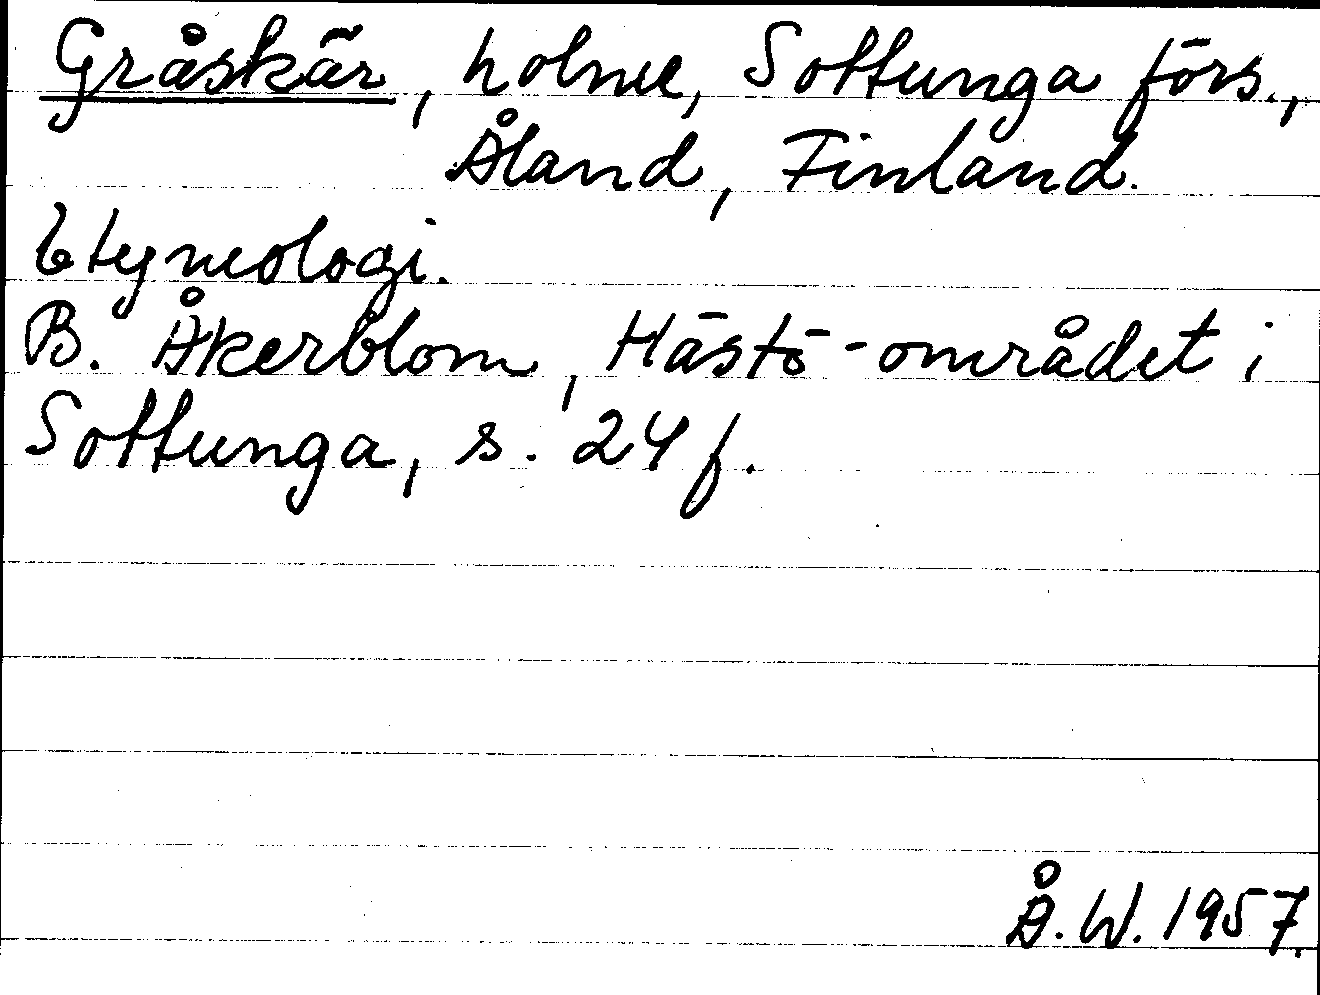 Gråskär, holme, Sottunga förs.,
Åland, Finland.
Etymologi.
B. Åkerblom, Hästö-området i
Sottunga, s. 24 f.
Å. W. 1957.